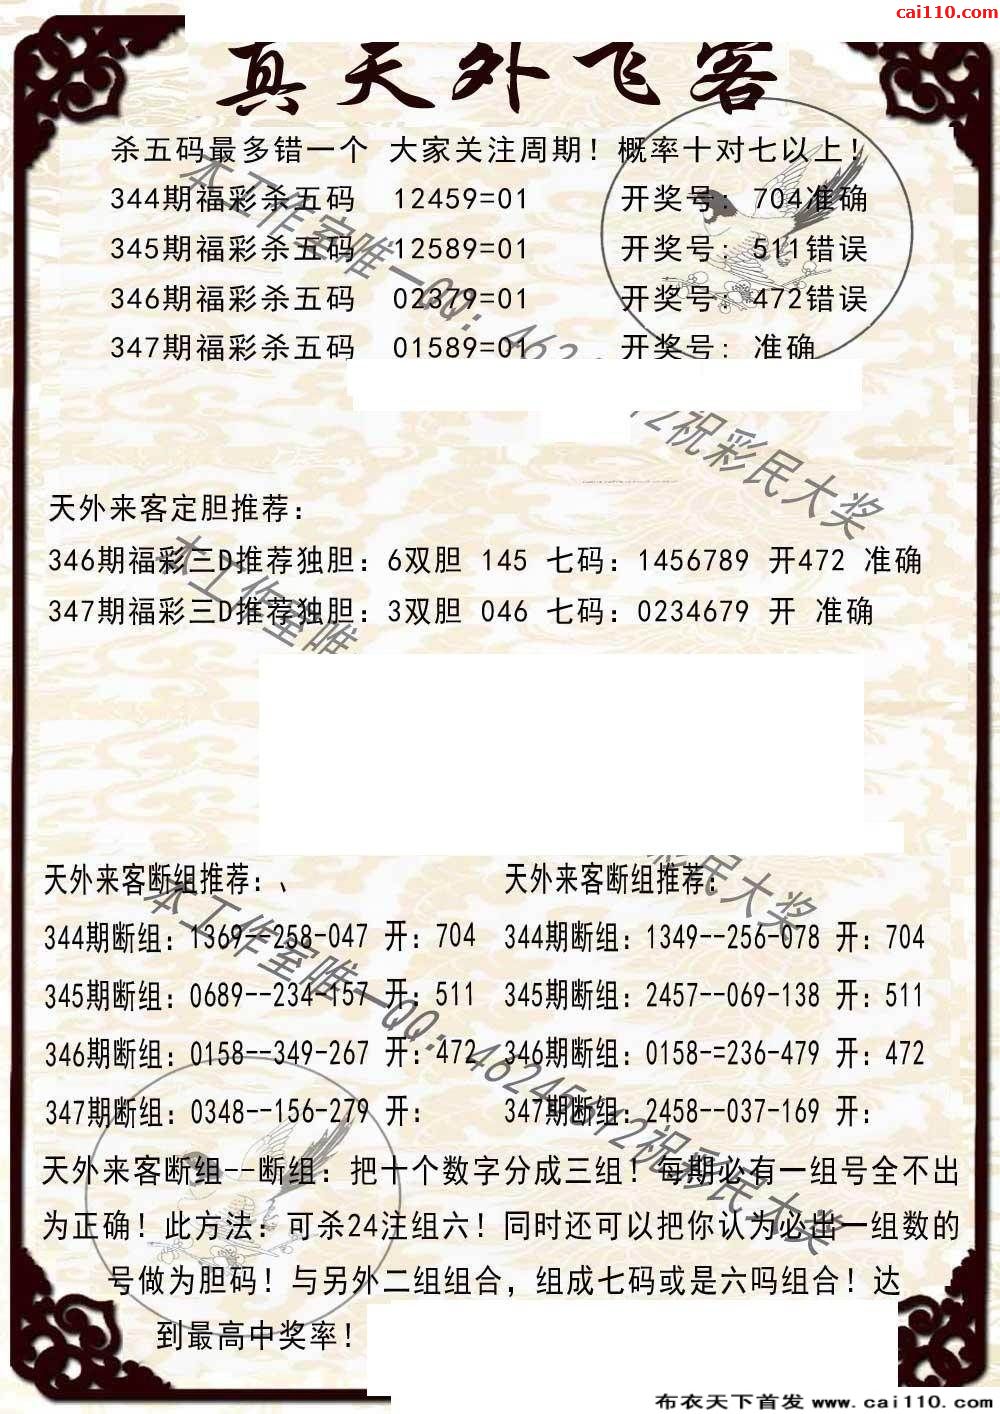 cai110.com
真天外飞客
杀五码最多错一个 大家关注周期！概率十对七以上！
344期福彩杀五码 12459=01 开奖号：704准确
345期福彩杀五码 12589=01 开奖号：511错误
346期福彩杀五码 02379=01 开奖号：472错误
347期福彩杀五码 01589=01 开奖号：准确
天外来客定胆推荐：
346期福彩三D推荐独胆：6双胆 145 七码：1456789 开472 准确
347期福彩三D推荐独胆：3双胆 046 七码：0234679 开 准确
天外来客断组推荐：、 天外来客断组推荐：
344期断组：1369--258-047 开：704 344期断组：1349--256-078 开：704
345期断组：0689--234-157 开：511 345期断组：2457--069-138 开：511
346期断组：0158--349-267 开：472 346期断组：0158-=236-479 开：472
347期断组：0348--156-279 开： 347期断组：2458--037-169 开：
天外来客断组--断组：把十个数字分成三组！每期必有一组号全不出
为正确！此方法：可杀24注组六！同时还可以把你认为必出一组数的
号做为胆码！与另外二组组合，组成七码或是六吗组合！达
到最高中奖率！
本工作室唯一QQ：462
2祝彩民大奖
本工作室唯
彩民大奖
本工作室唯一QQ：46245612祝彩民大奖
布衣天下首发 www.cai110.com